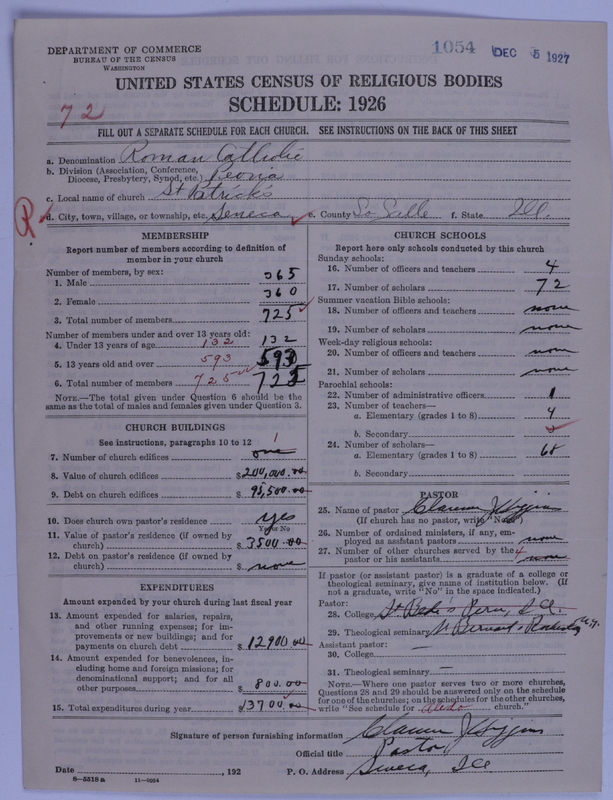 DEPARTMENT OF COMMERCE
BUREAU OF THE CENSUS
WASHINGTON
1054 DEC 5 1927
UNITED STATES CENSUS OF RELIGIOUS BODIES
SCHEDULE: 1926
72
FILL OUT A SEPARATE SCHEDULE FOR EACH CHURCH. SEE INSTRUCTIONS ON THE BACK OF THIS SHEET
a. Denomination Roman Catholic
b. Division (Association, Conference,
Diocese, Presbytery, Synod, etc.) Peoria
c. Local name of church St Patrick's
d. City, town, village, or township, etc. Seneca e. County La Salle f. State Ill.
MEMBERSHIP
Report number of members according to definition of
member in your church
Number of members, by sex:
1. Male 365
2. Female 360
3. Total number of members 725
Number of members under and over 13 years old:
4. Under 13 years of age 132 132
5. 13 years old and over 593 593
6. Total number of members 725 725
NOTE.—The total given under Question 6 should be
same as the total of males and females given under Question 3.
CHURCH BUILDINGS
See instructions, paragraphs 10 to 12
7. Number of church edifices one 1
8. Value of church edifices $200,000.00
9. Debt on church edifices $95,500.00
10. Does church own pastor's residence yes
Yes or No
11. Value of pastor's residence (if owned by
church) $3500.00
12. Debt on pastor's residence (if owned by
church) $ none
EXPENDITURES
Amount expended by your church during last fiscal year
13. Amount expended for salaries, repairs,
and other running expenses; for im-
provements or new buildings; and for
payments on church debt $12900.00
14. Amount expended for benevolences, in-
cluding home and foreign missions; for
denominational support; and for all
other purposes $800.00
15. Total expenditures during year $13700.00
CHURCH SCHOOLS
Report here only schools conducted by this church
Sunday schools:
16. Number of officers and teachers 4
17. Number of scholars 72
Summer vacation Bible schools:
18. Number of officers and teachers none
19. Number of scholars none
Week-day religious schools:
20. Number of officers and teachers none
21. Number of scholars none
Parochial schools:
22. Number of administrative officers 1
23. Number of teachers—
a. Elementary (grades 1 to 8) 4
b. Secondary
24. Number of scholars—
a. Elementary (grades 1 to 8) 68
b. Secondary
PASTOR
25. Name of pastor Clarence J Higgins
(If church has no pastor, write "None")
26. Number of ordained ministers, if any, em-
ployed as assistant pastors none
27. Number of other churches served by the
pastor or his assistants none
If pastor (or assistant pastor) is a graduate of a college or
theological seminary, give name of institution below. (If
not a graduate, write "No" in the space indicated.)
Pastor:
28. College St Bede's Peru, Ill.
29. Theological seminary St Bernard's Rochester N.Y.
Assistant pastor: —
30. College
31. Theological seminary —
NOTE.—Where one pastor serves two or more churches,
Questions 28 and 29 should be answered only on the schedule
for one of the churches; on the schedules for the other churches,
write "See schedule for church."
Signature of person furnishing information Clarence J Higgins
Official title Pastor
Date , 192 P. O. Address Seneca, Ill
8-5518a 11-9054